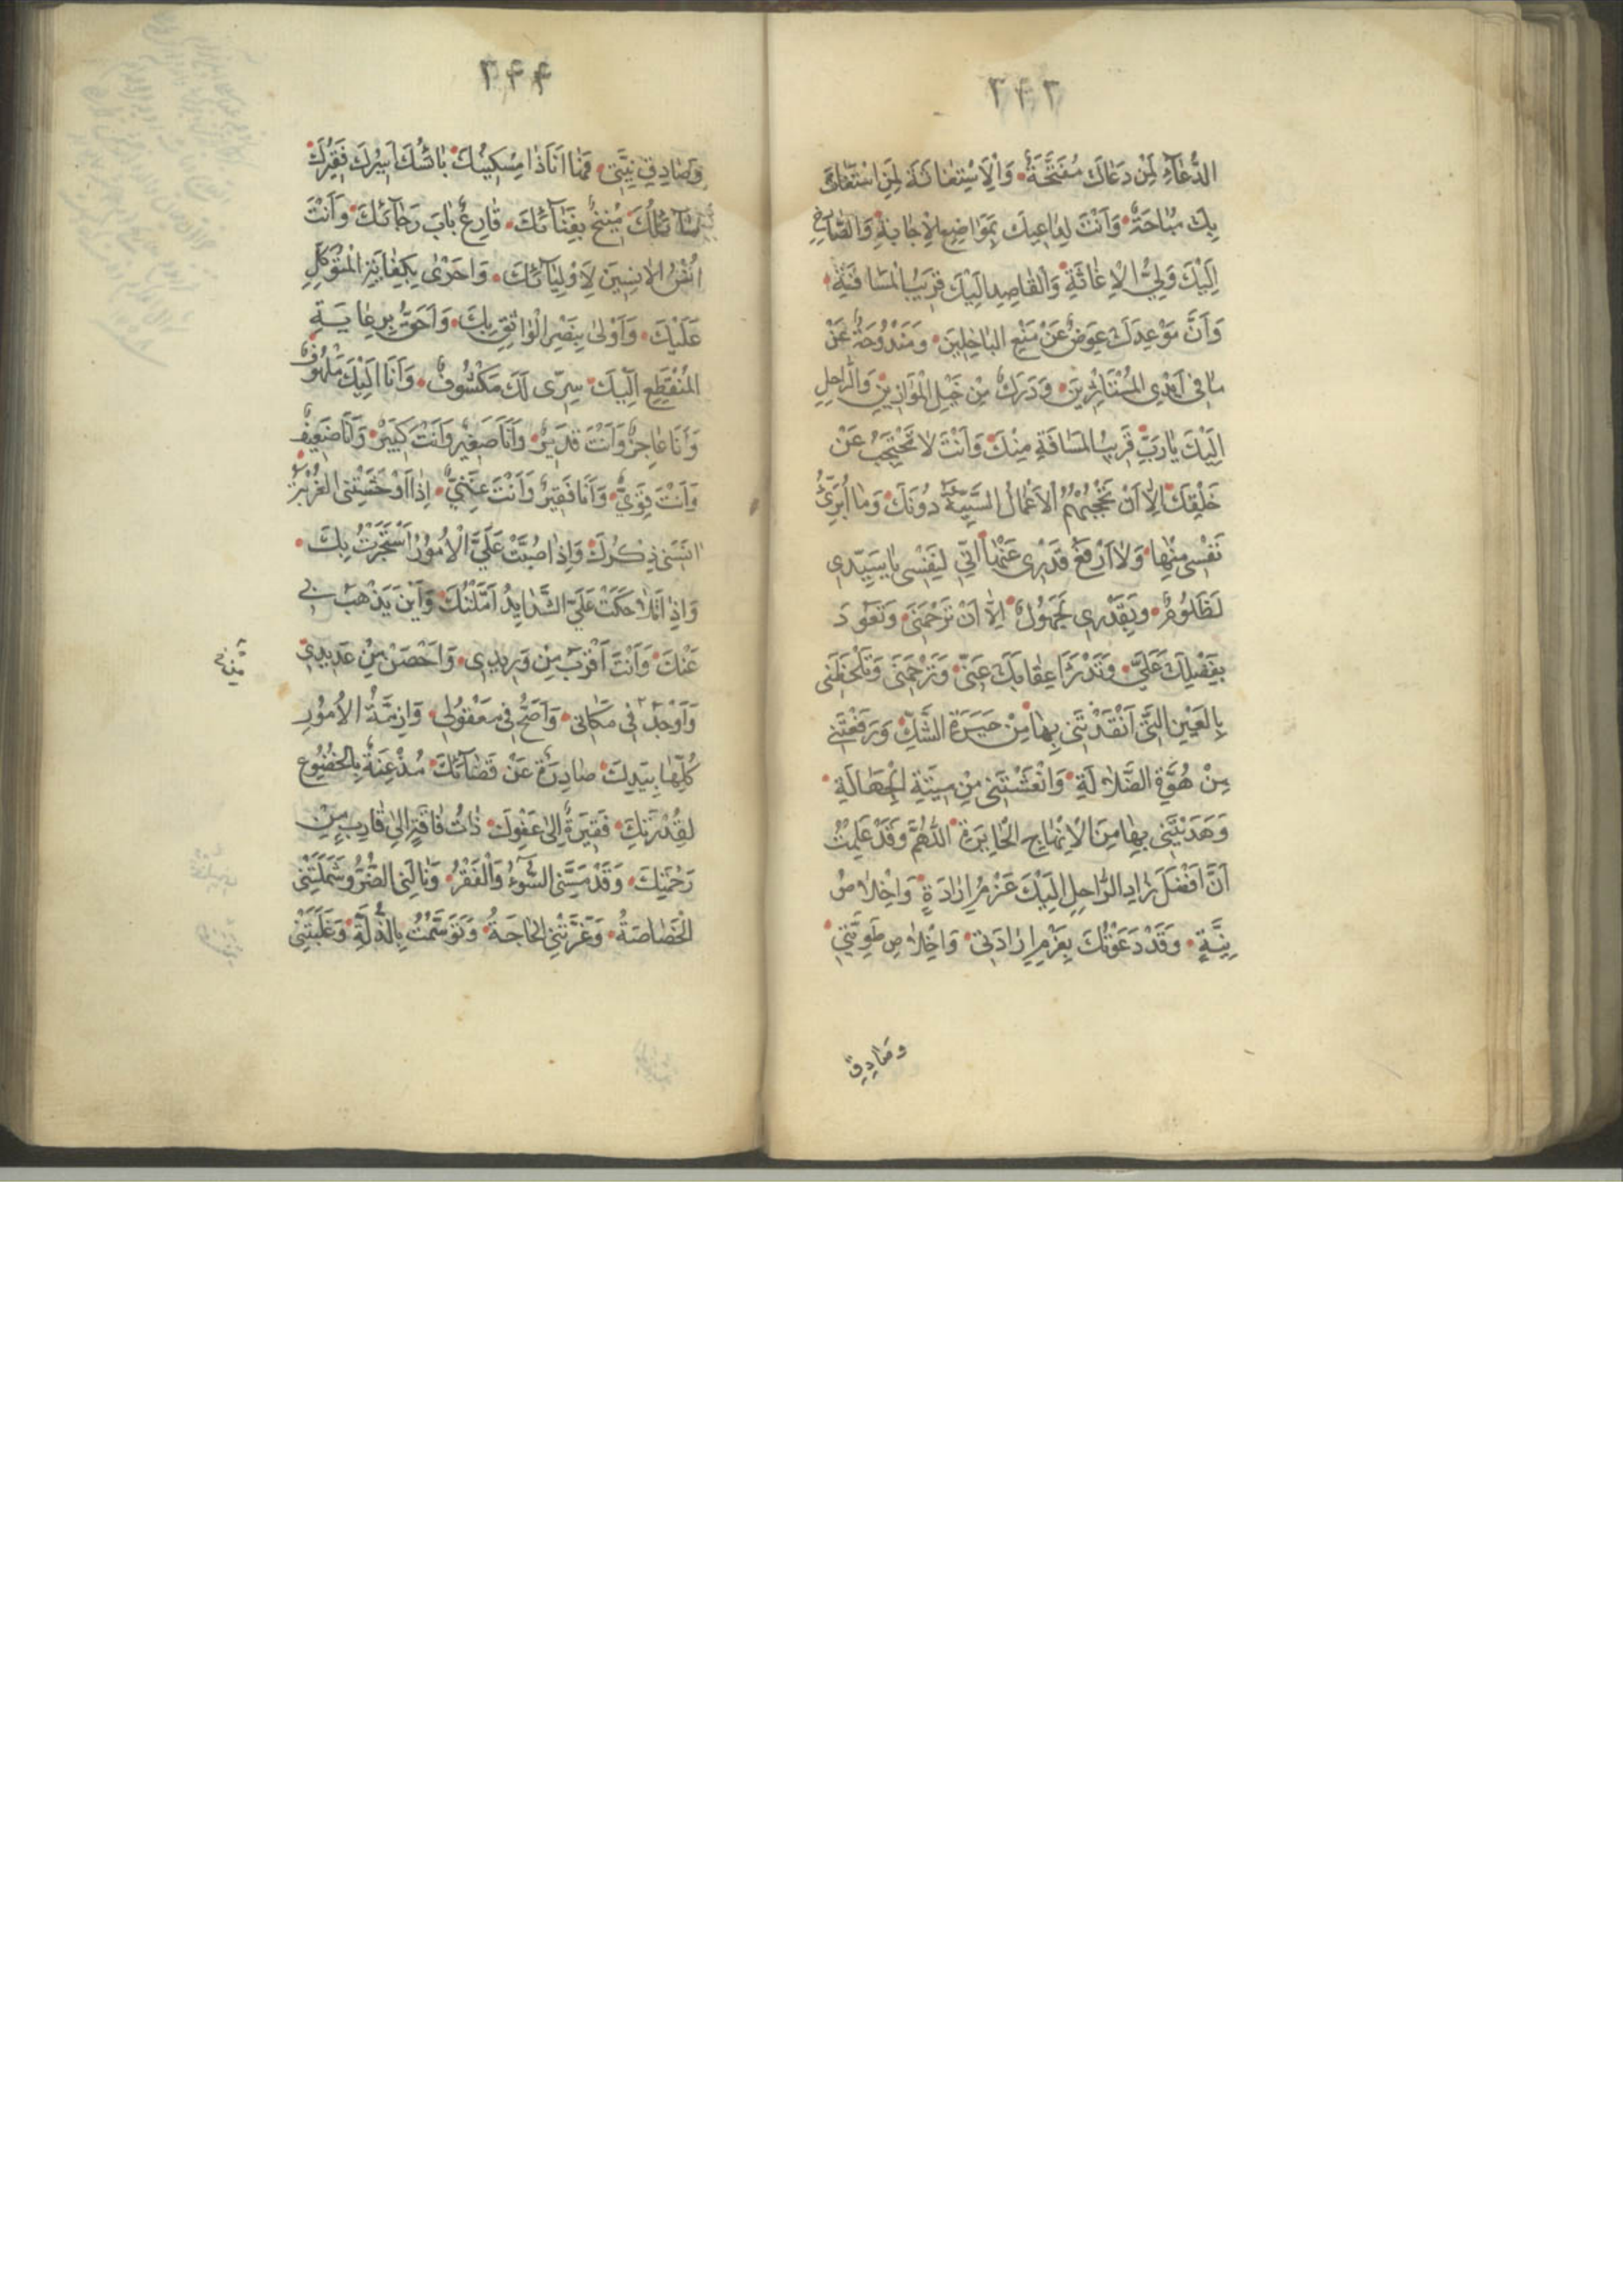 ۳۴۳
الدُّعَآءِ لِمَنْ دَعَاكَ مُفَتَّحَةٌ وَالْاِسْتِغَاثَةَ لِمَنِ اسْتَغَاثَ
بِكَ مُبَاحَةٌ وَاَنْتَ لِدَاعِيكَ بِمَوَاضِعِ الْاِجَابَةِ وَالصَّارِخِ
اِلَيْكَ وَلِيُّ الْاِغَاثَةِ وَالْقَاصِدِ اِلَيْكَ قَرِيبُ الْمَسَافَةِ
وَاَنَّ مَوْعِدَكَ عِوَضٌ عَنْ مَنْعِ الْبَاخِلِينَ وَمَنْدُوحَةٌ عَنْ
مَا فِى اَيْدِى الْمُسْتَاْثِرِينَ وَدَرَكٌ مِنْ خَيْلِ الْمُوَازِينَ وَالرَّاحِلِ
اِلَيْكَ يَا رَبِّ قَرِيبُ الْمَسَافَةِ مِنْكَ وَاَنْتَ لَا تَحْتَجِبُ عَنْ
خَلْقِكَ اِلَّا اَنْ تَحْجُبَهُمُ الْاَعْمَالُ السَّيِّئَةُ دُونَكَ وَمَا اُبَرِّئُ
نَفْسِى مِنْهَا وَلَا اَرْفَعُ قَدْرِى عَنْهَا اِنِّى لِنَفْسِى يَا سَيِّدِى
لَظَلُومٌ وَبِقَدْرِى لَجَهُولٌ اِلَّا اَنْ تَرْحَمَنِى وَتَعُودَ
بِفَضْلِكَ عَلَيَّ وَتَدْرَاَ عِقَابَكَ عَنِّى وَتَرْحَمَنِى وَتَلْحَظَنِى
بِالْعَيْنِ الَّتِى اَنْقَذْتَنِى بِهَا مِنْ حَيْرَةِ الشَّكِّ وَرَفَعْتَنِى
مِنْ هُوَّةِ الضَّلَالَةِ وَانْعَشْتَنِى مِنْ مِيتَةِ الْجَهَالَةِ
وَهَدَيْتَنِى بِهَا مِنَ الْاِنْهَاجِ الْحَايِرَةِ اللّٰهُمَّ وَقَدْ عَلِمْتُ
اَنَّ اَفْضَلَ زَادِ الرَّاحِلِ اِلَيْكَ عَزْمُ اِرَادَةٍ وَاِخْلَاصُ
نِيَّةٍ وَقَدْ دَعَوْتُكَ بِعَزْمِ اِرَادَتِى وَاِخْلَاصِ طَوِيَّتِى
وصَادِقِ
۳۴۴
وَصَادِقِ نِيَّتِى فَهَا اَنَا ذَا مِسْكِينُكَ بَائِسُكَ اَسِيرُكَ فَقِيرُكَ
سَآئِلُكَ مُنِيخٌ بِفِنَآئِكَ قَارِعٌ بَابَ رَجَآئِكَ وَاَنْتَ
اُنْسُ الْاٰنِسِينَ لِاَوْلِيَآئِكَ وَاَحْرٰى بِكِفَايَةِ الْمُتَوَكِّلِ
عَلَيْكَ وَاَوْلٰى بِنَصْرِ الْوَاثِقِ بِكَ وَاَحَقُّ بِرِعَايَةِ
الْمُنْقَطِعِ اِلَيْكَ سِرِّى لَكَ مَكْشُوفٌ وَاَنَا اِلَيْكَ مَلْهُوفٌ
وَاَنَا عَاجِزٌ وَاَنْتَ قَدِيرٌ وَاَنَا صَغِيرٌ وَاَنْتَ كَبِيرٌ وَاَنَا ضَعِيفٌ
وَاَنْتَ قَوِيٌّ وَاَنَا فَقِيرٌ وَاَنْتَ غَنِيٌّ اِذَا اَوْحَشَتْنِى الْغُرْبَةُ
اٰنَسَنِى ذِكْرُكَ وَاِذَا صُبَّتْ عَلَيَّ الْاُمُورُ اسْتَجَرْتُ بِكَ
وَاِذَا تَلَاحَكَتْ عَلَيَّ الشَّدَايِدُ اَمَّلْتُكَ وَاَيْنَ يَذْهَبُ بِى
عَنْكَ وَاَنْتَ اَقْرَبُ مِنْ وَرِيدِى وَاَحْصَنُ مِنْ عَدِيدِى
وَاَوْجَدُ فِى مَكَانِى وَاَصَحُّ فِى مَعْقُولِى وَاَزِمَّةُ الْاُمُورِ
كُلِّهَا بِيَدِكَ صَادِرَةٌ عَنْ قَضَآئِكَ مُذْعِنَةٌ بِالْخُضُوعِ
لِقُدْرَتِكَ فَقِيرَةٌ اِلٰى عَفْوِكَ ذَاتُ فَاقَةٍ اِلٰى قَارِبٍ مِنْ
رَحْمَتِكَ وَقَدْ مَسَّنِى السُّوٓءُ وَالْفَقْرُ وَنَالَنِى الضُّرُّ وَشَمِلَتْنِى
الْخَصَاصَةُ وَعَرَّتْنِى الْحَاجَةُ وَتَوَسَّمْتُ بِالذِّلَّةِ وَغَلَبَتْنِى